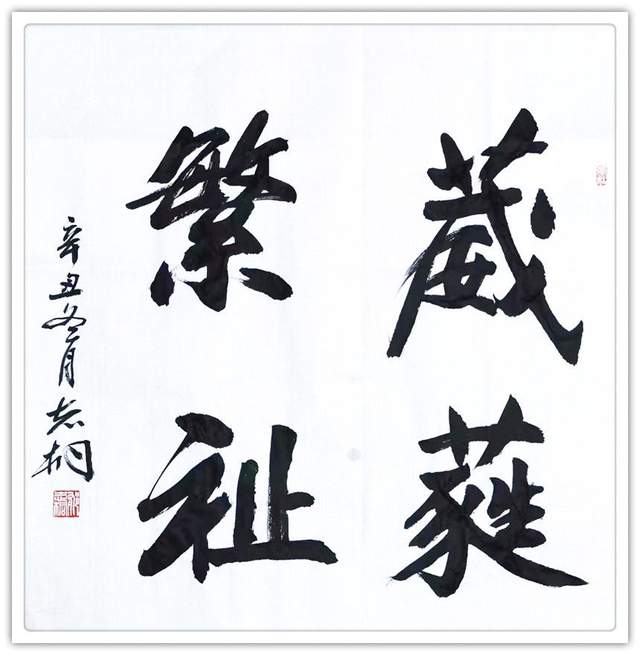 葳蕤
繁祉
辛丑冬月志桐